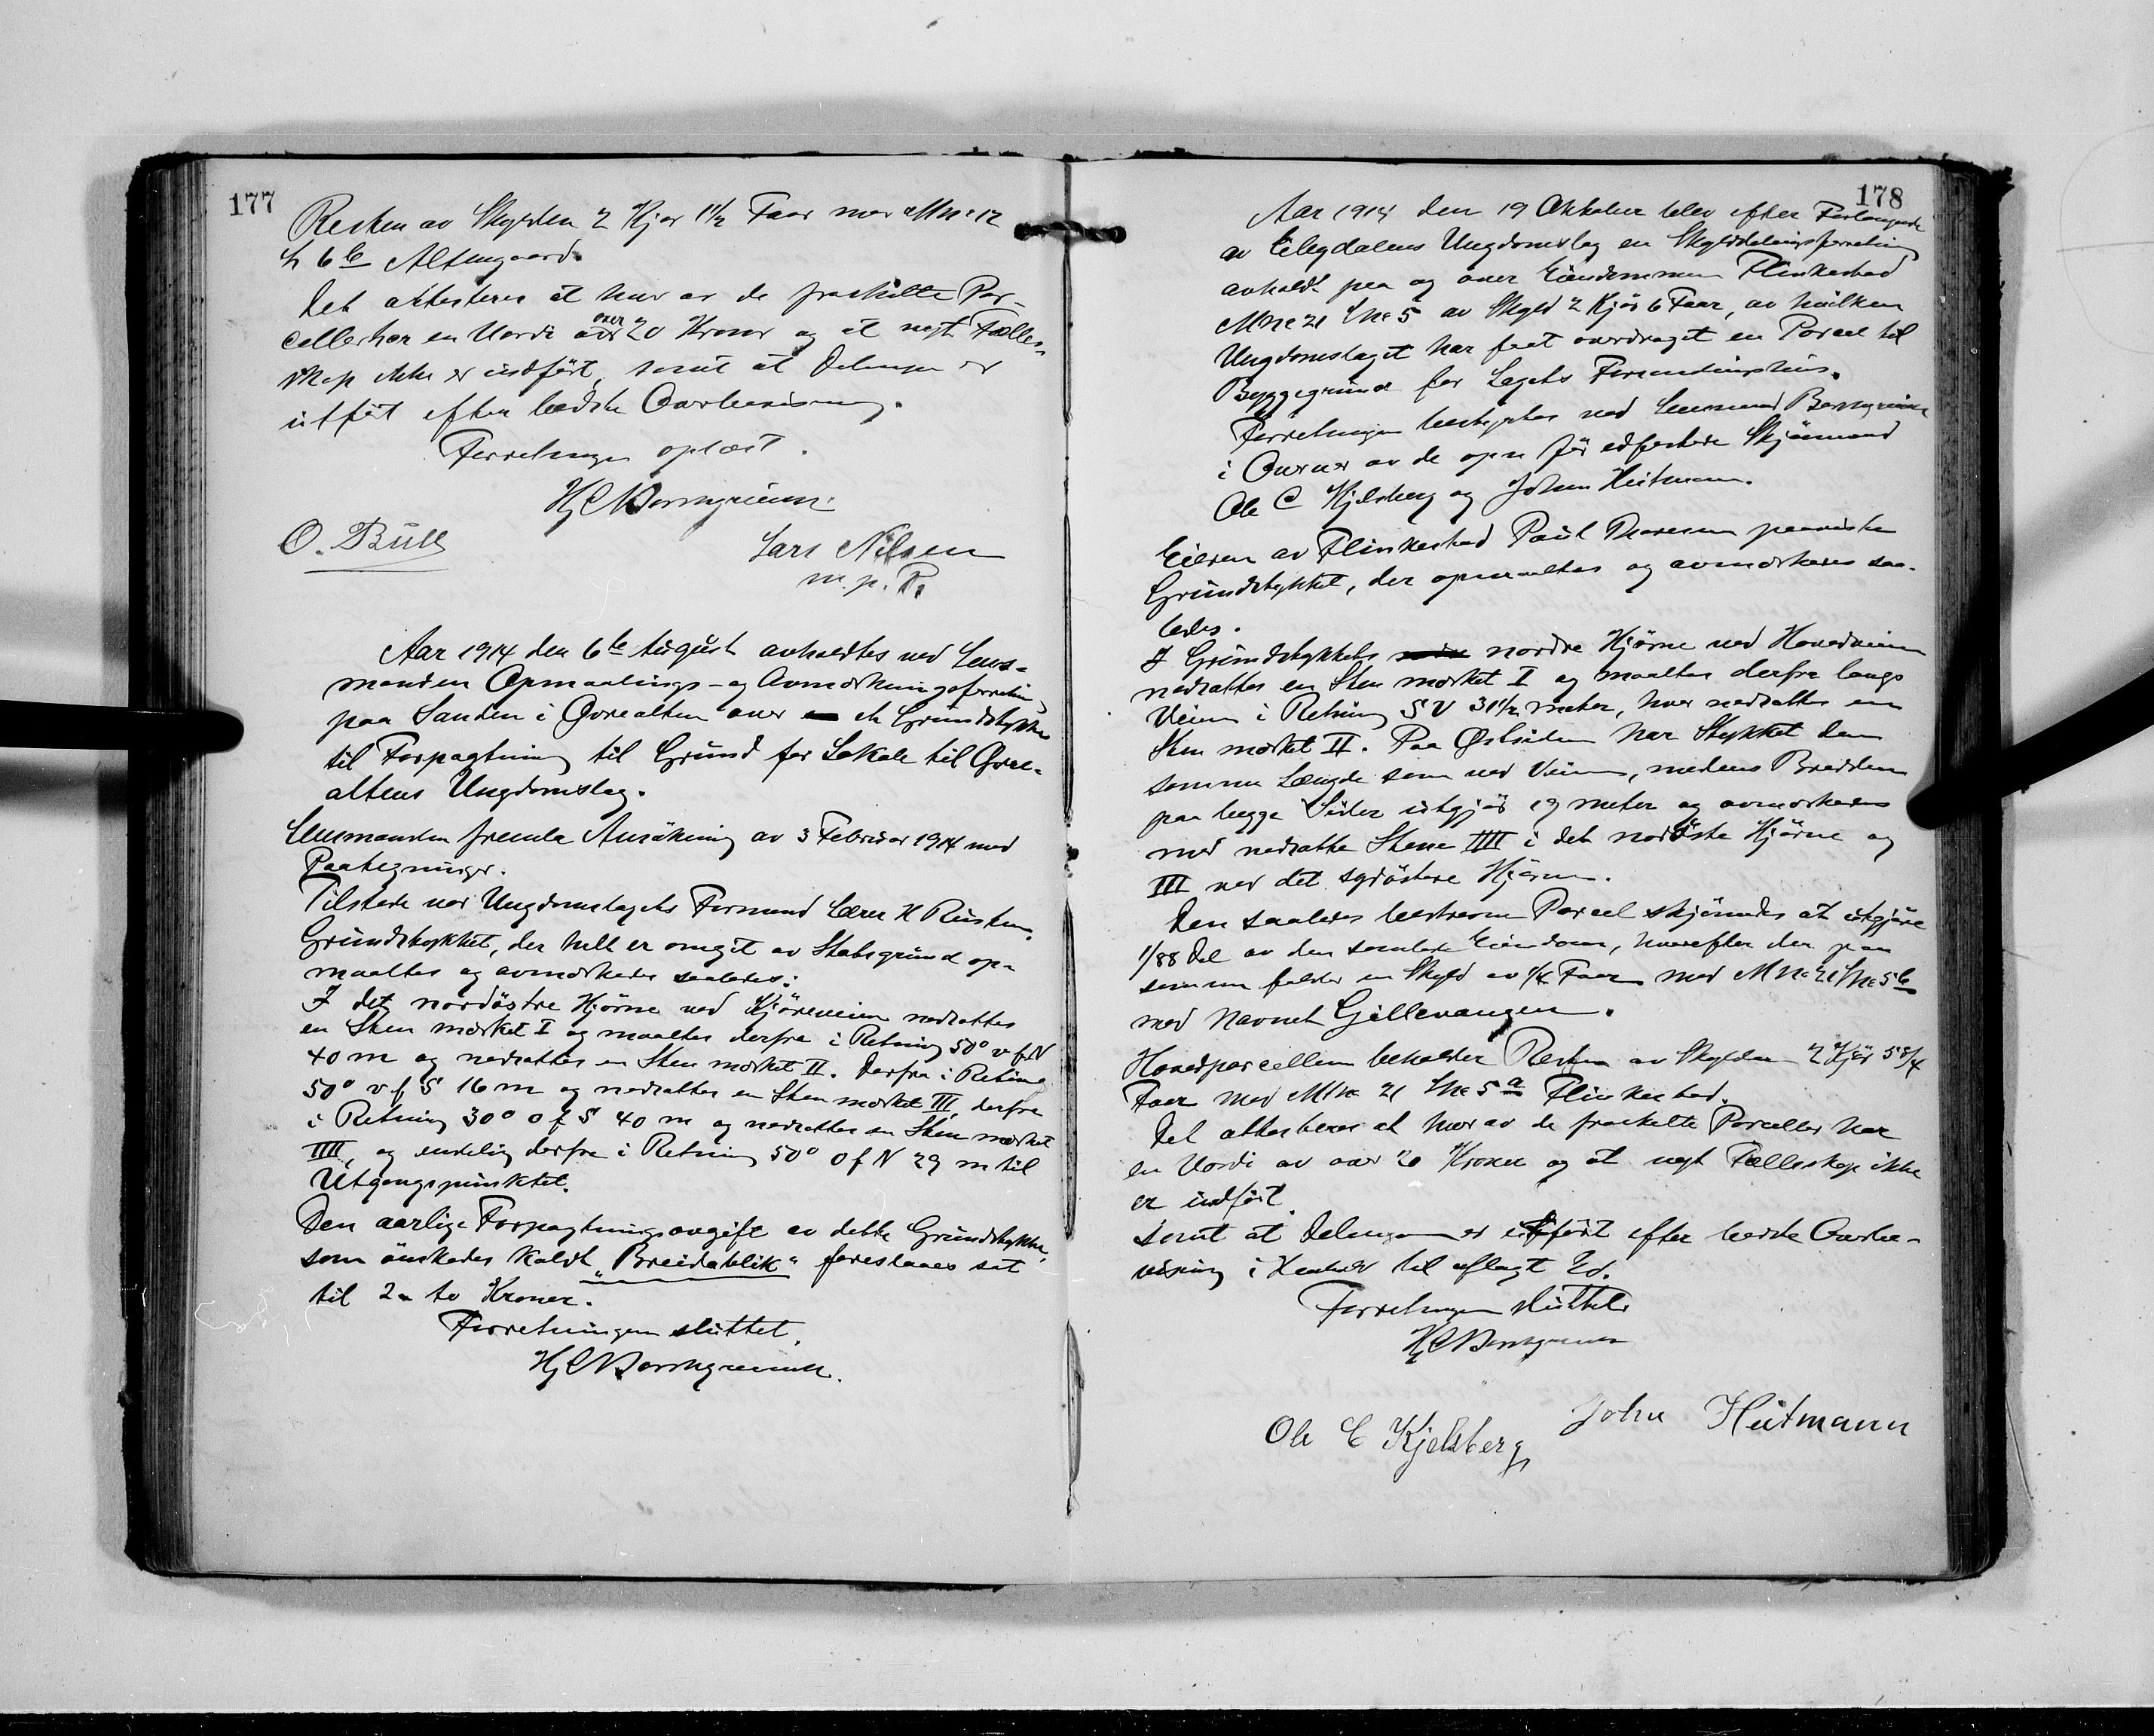 177
Resten av Skylden 2 Kjør 1½ Faar med M no 12
L 6 b Altengaard.
Det attesteres at hver av de fraskilte Par-
celler har en Værdi over 20 Kroner og at nyt Fælles-
skap ikke er indført, samt at Delingen er
utført efter bedste Overbevisning.
Forretningen oplæst.
O. Bull
Lars Nilsen
m. p. P.
Aar 1914 den 6te August avholdtes ved Lens-
manden Opmaalings- og Avmærkningsforretning
paa Sanden i Øvrealten over et Grundstykke
til Forpagtning til Grund for Lokale til Øvre-
altens Ungdomslag.
Lensmanden fremla Ansøkning av 3 Februar 1914 med
Paategninger.
Tilstede var Ungdomslagets Formand Lærer H
Grundstykket, der helt er omgit av Statsgrund op-
maaltes og avmærkedes saaledes:
I det nordøstre Hjørne ved Kjøreveien nedsattes
en Sten mærket I og maaltes derfra i Retning 50° v f N
40 m og nedsattes en Sten mærket II. Derfra i Retning
50° v f S 16 m og nedsattes en Sten mærket III, derfra
i Retning 30° o f S 40 m og nedsattes en Sten mærket
IIII, og endelig derfra i Retning 50° o f N 29 m til
Utgangspunktet.
Den aarlige Forpagtningsavgift av dette Grundstykke,
som ønskedes kaldt „Breidablik“ foreslaaes sat
til 2 - to Kroner.
Forretningen sluttet.
178
Aar 1914 den 19 Oktober blev efter Forlangende
av Elvgdalens Ungdomslag en Skylddelingsforretning
avholdt paa og over Eiendommen Flinkestad
M no 21 L no 5 av Skyld 2 Kjør 6 Faar, av hvilken
Ungdomslaget har faat overdraget en Parcel til
Byggegrund for Lagets Forsamlingshus.
Forretningen bestyrtes ved Lensmand
i Overvær av de opn før edfæstede Skjønsmænd
Ole C Kjelsberg og Johan Heitmann.
Eieren av Flinkestad Paul Thoresen paaviste
Grundstykket, der opmaaltes og avmærkedes saa-
ledes.
I Grundstykkets nordre Hjørne ved Hovedveien
nedsattes en Sten mærket I og maaltes derfra langs
Veien i Retning S V 31½ meter, hvor nedsattes en
Sten mærket II. Paa Østsiden har Stykket den
samme Længde som ved Veien, medens Bredden
paa begge Sider utgjør 19 meter og avmærkedes
med nedsatte Stene IIII i det nordøste Hjørne og
III ved det sydøstere Hjørne.
Den saaledes beskrevne Parcel skjønnedes at utgjøre
1/88 Del av den samlede Eiendom, hvorefter der paa
samme falder en Skyld av ¼ Faar med M no 21 L no 5 b
med Navnet Gillevangen.
Hovedparcellen beholder Resten av Skylden 2 Kjør 5 3/4
Faar med M no 21 L no 5 a Flinkestad.
Det attesteres at hver av de fraskilte Parceller har
en Værdi av over 20 Kroner og at nyt Fælleskap ikke
er indført
samt at Delingen er utført efter bedste Overbe-
visning i Henhold til aflagt Ed.
Forretningen sluttet.
Ole C Kjelsberg
John Heitmann